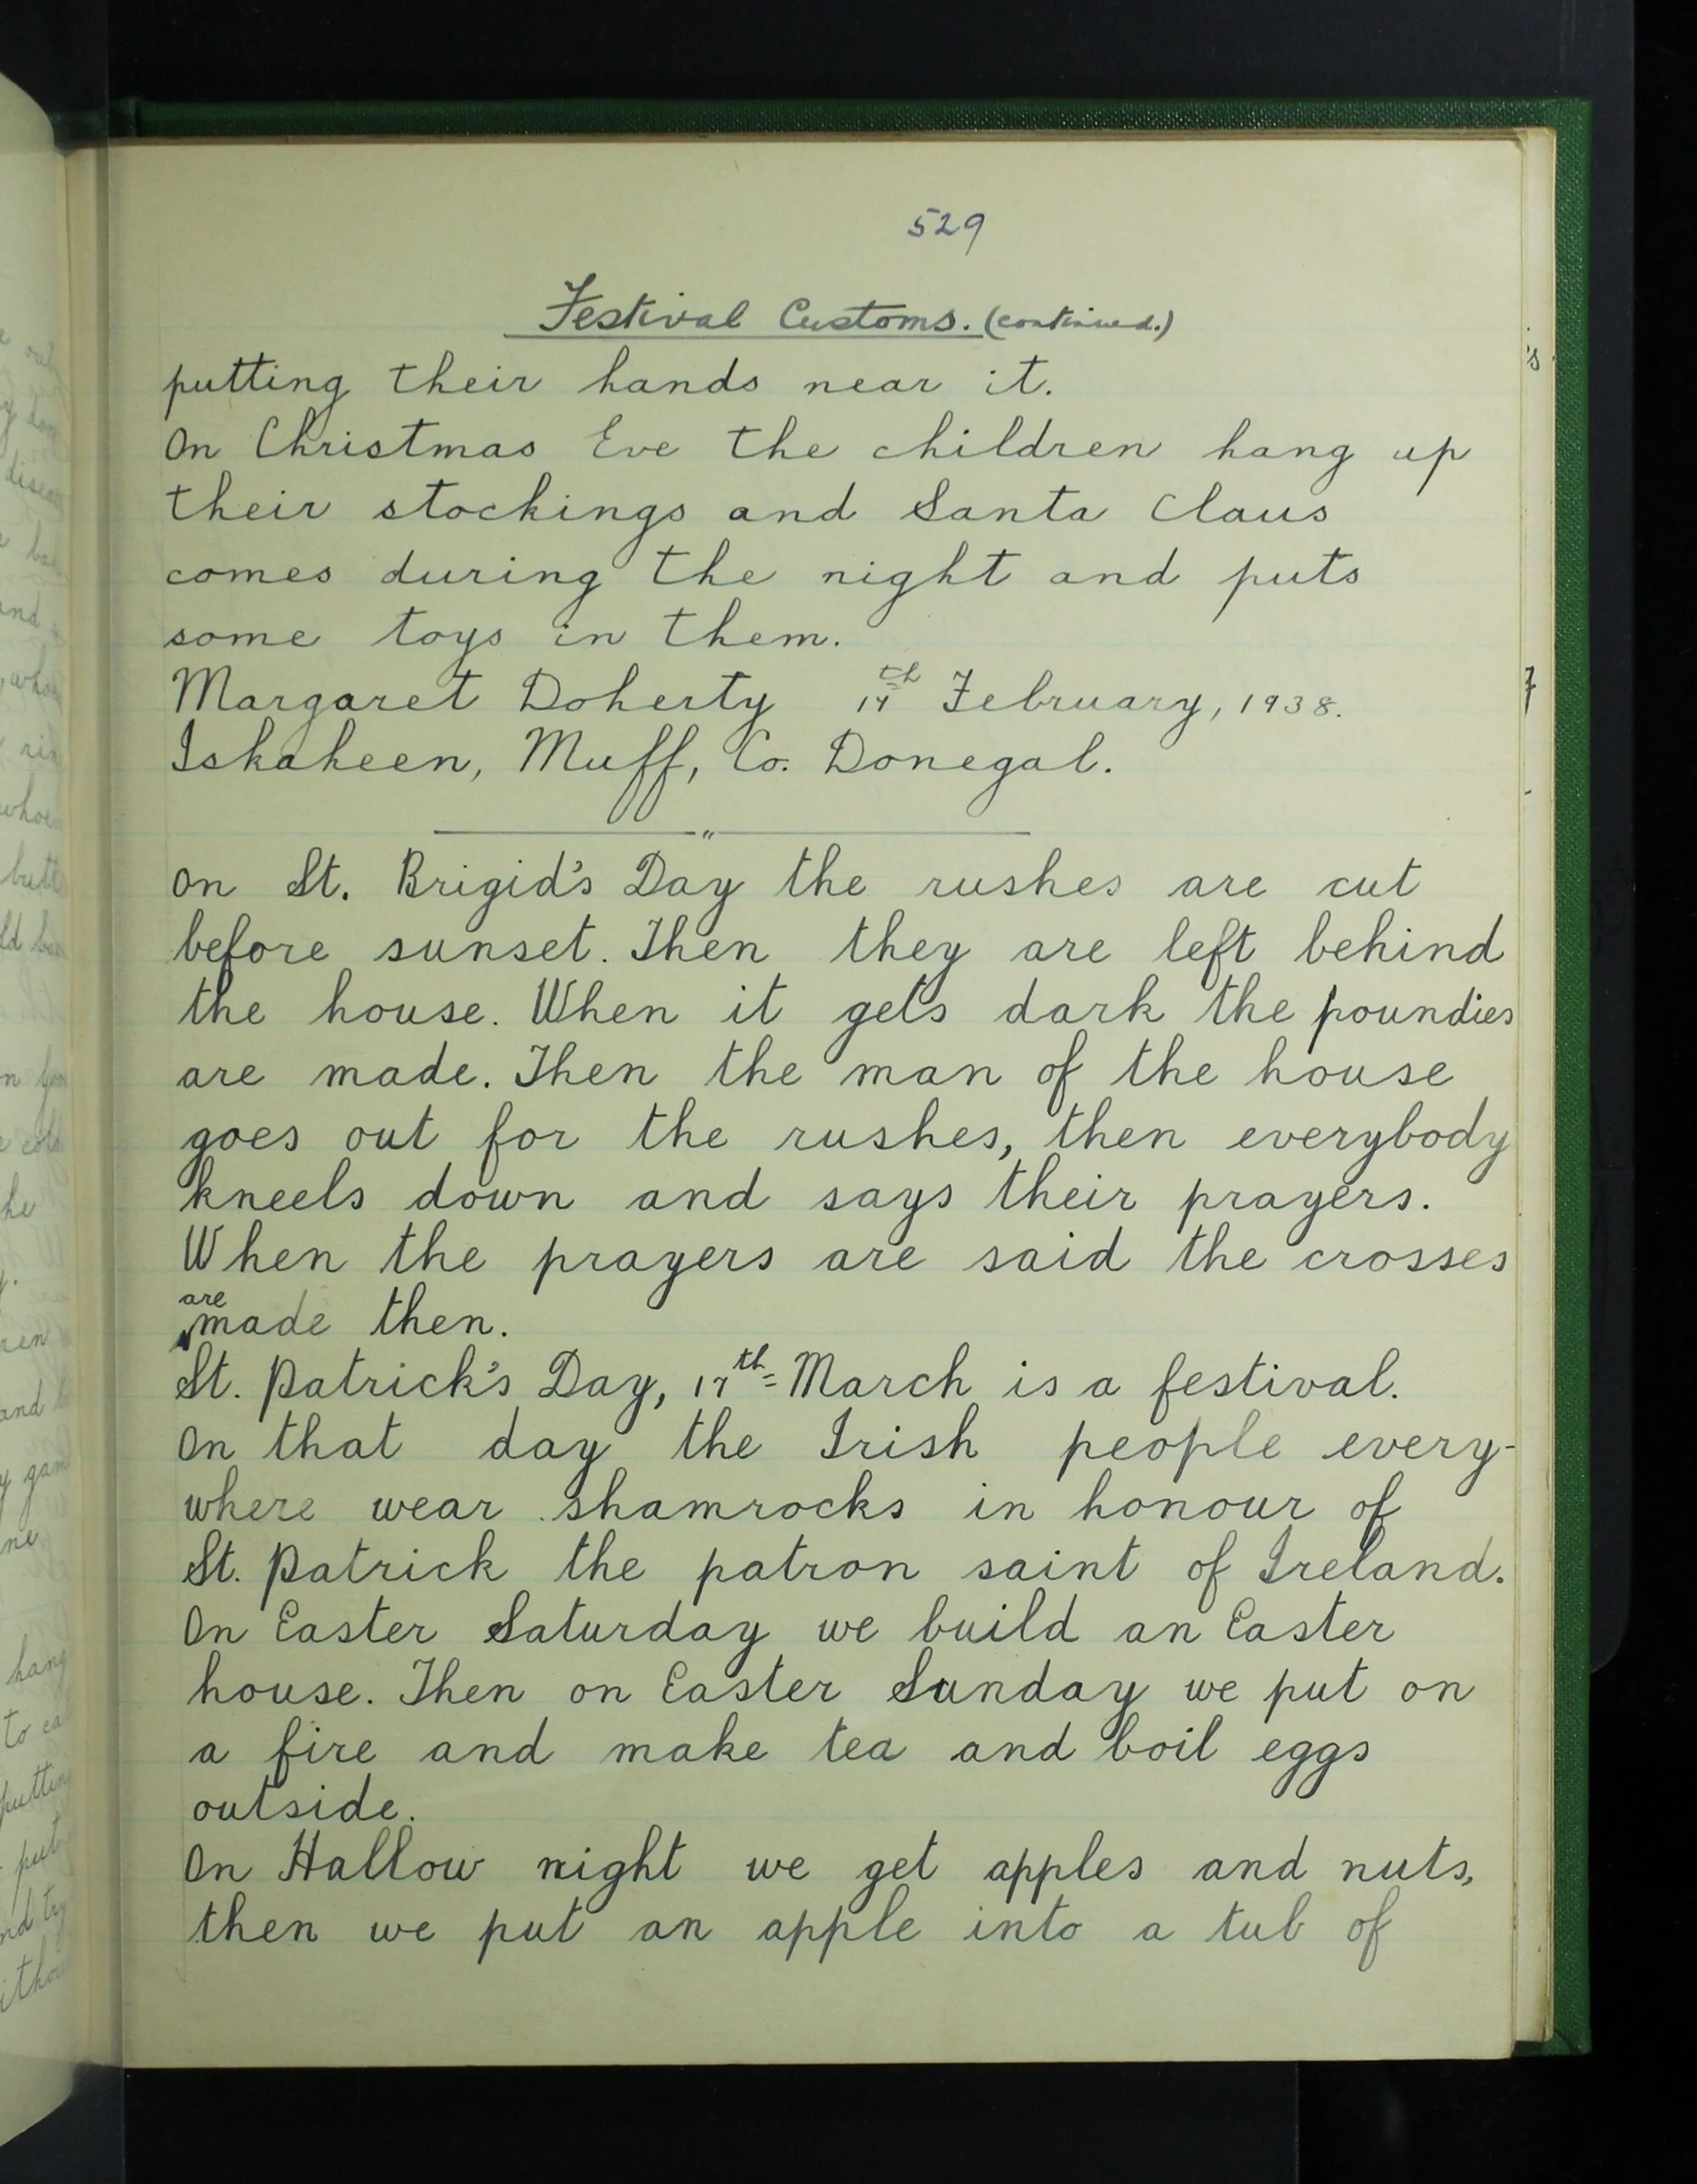 529
Festival Customs. (continued.)
putting their hands near it.
On Christmas Eve the children hang up
their stockings and Santa Claus
comes during the night and puts
some toys in them.
Margaret Doherty 17th February, 1938.
Iskaheen, Muff, Co. Donegal.
On St. Brigid's Day the rushes are cut
before sunset. Then they are left behind
the house. When it gets dark the poundies
are made. Then the man of the house
goes out for the rushes, then everybody
kneels down and says their prayers.
When the prayers are said the crosses
are made then.
St. Patrick's Day, 17th March is a festival.
On that day the Irish people every-
where wear shamrocks in honour of
St. Patrick the patron saint of Ireland.
On Easter Saturday we build an Easter
house. Then on Easter Sunday we put on
a fire and make tea and boil eggs
outside.
On Hallow night we get apples and nuts,
then we put an apple into a tub of